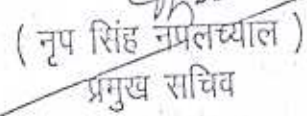 ( नृप सिंह नपलच्याल )
प्रमुख सचिव